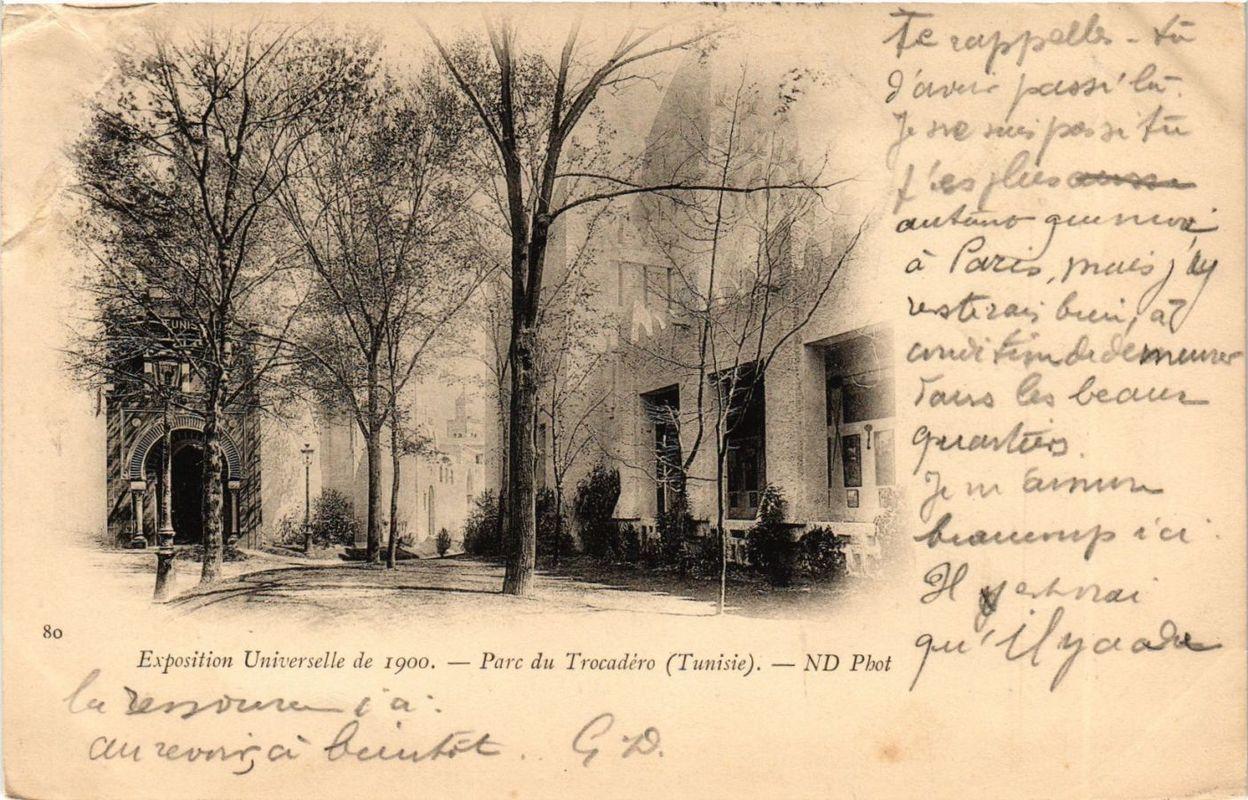 TUNIS
Te rappelles-tu
d'avoir passé là.
Je ne sais pas si tu
t'es plus
autant que moi,
à Paris, mais j'y
resterais bien, à
condition de demeurer
dans les beaux
quartiers.
Je m'amuse
beaucoup ici.
Il est vrai
qu'il y a de
80
Exposition Universelle de 1900. — Parc du Trocadéro (Tunisie). — ND Phot
la ressource ici.
au revoir, à bientôt. G D.